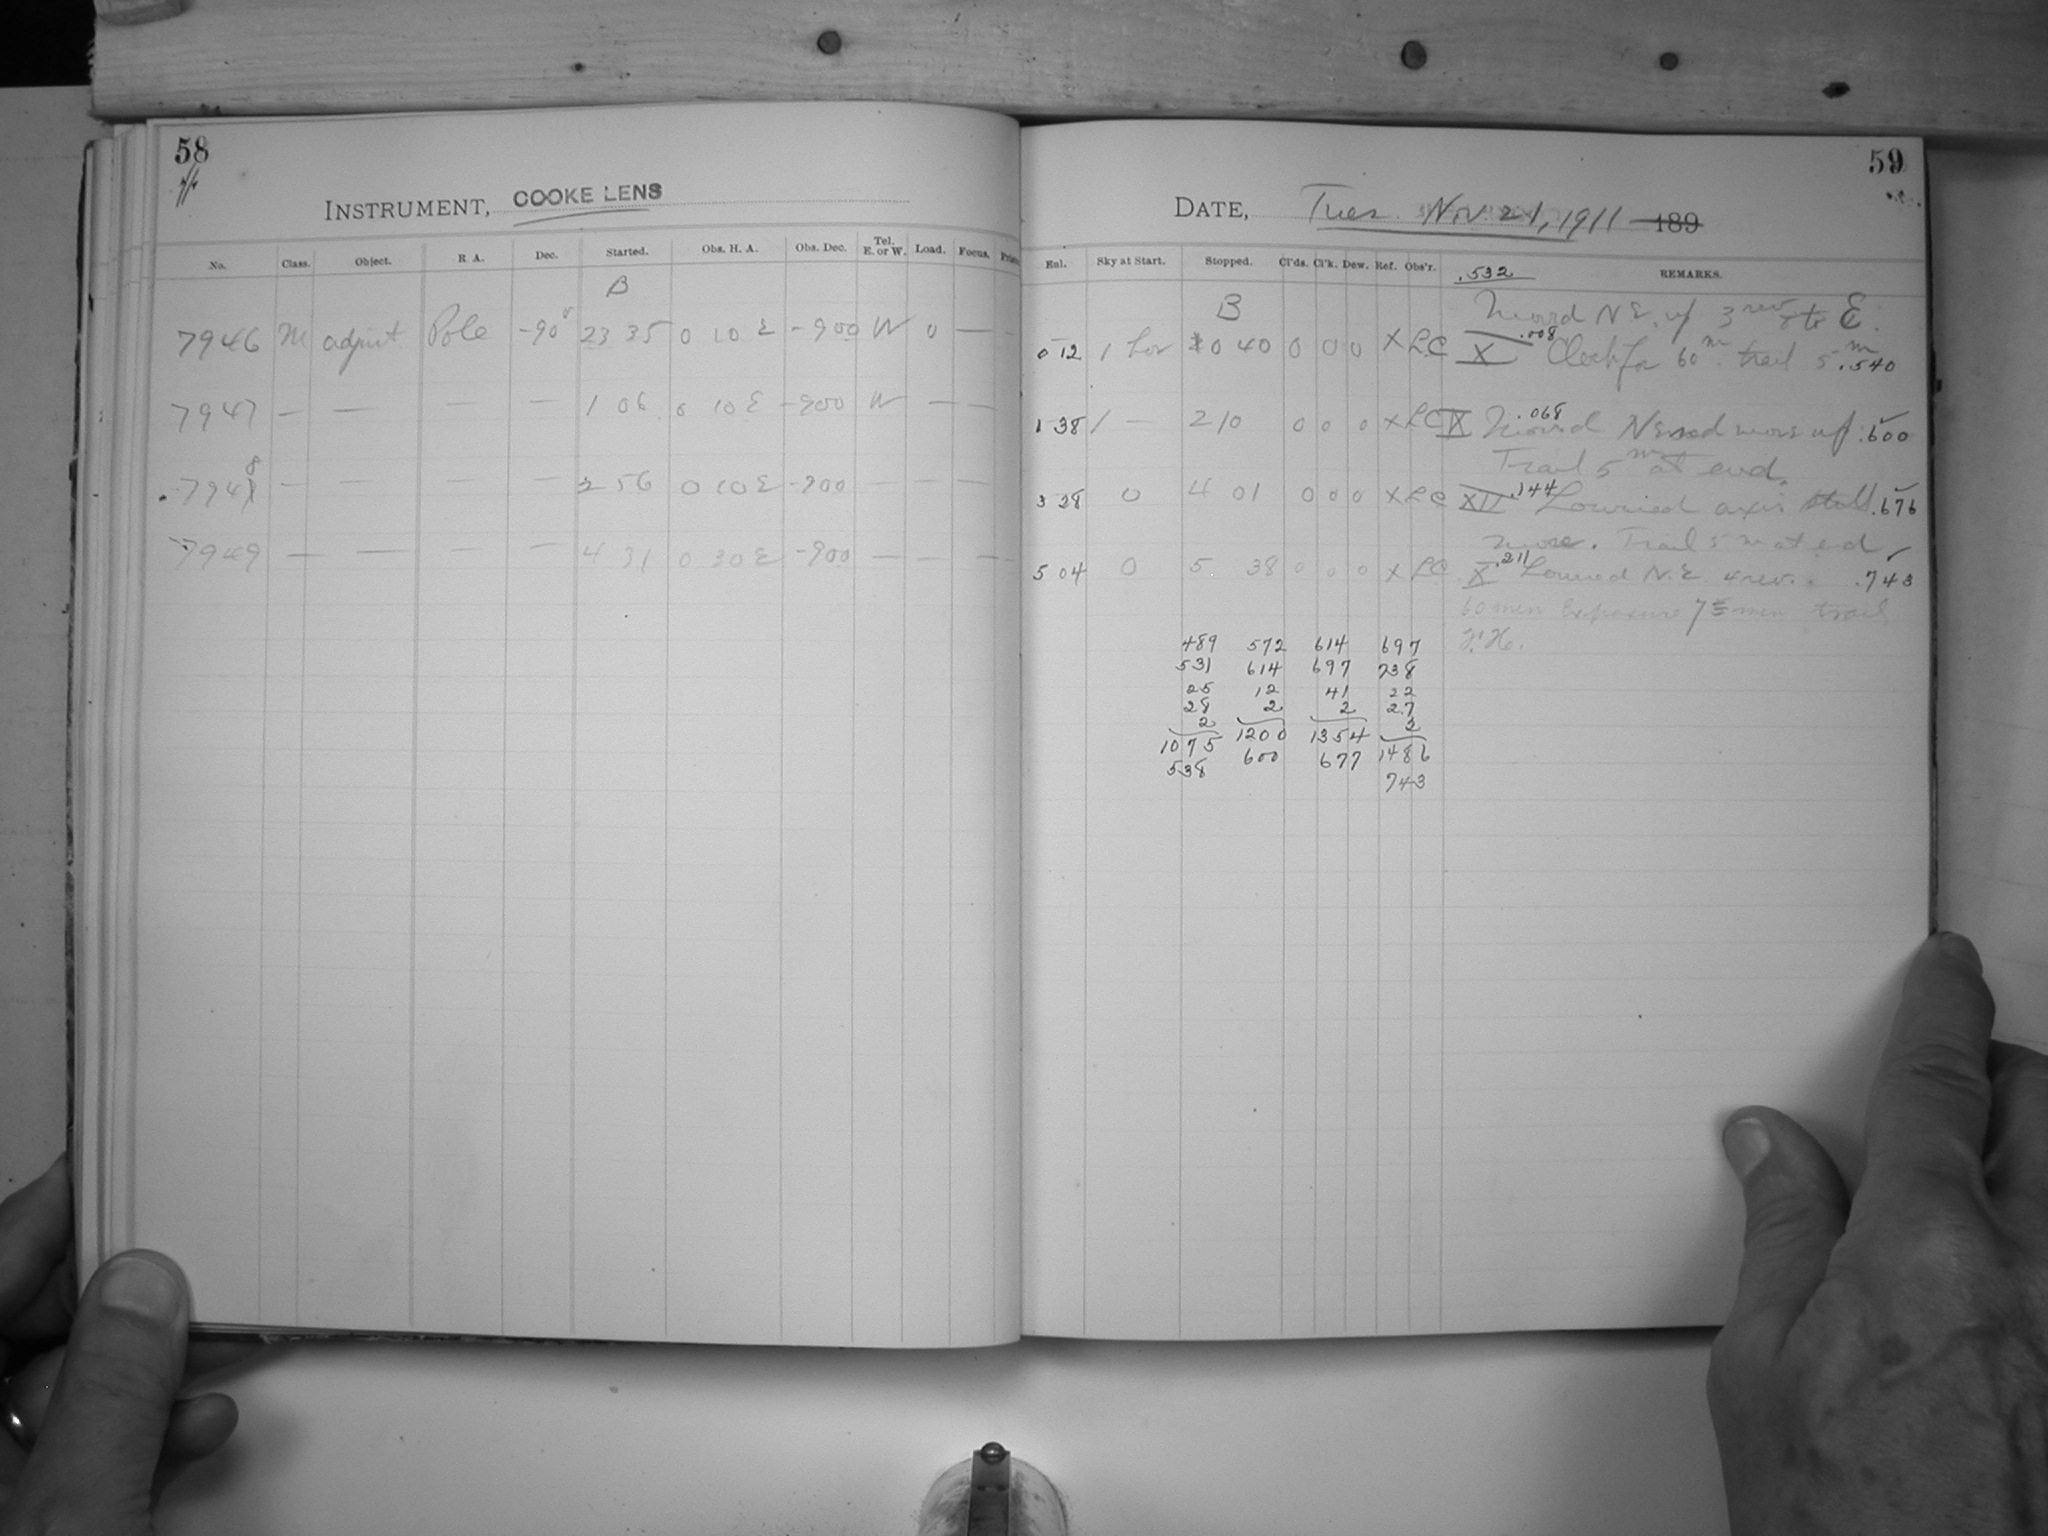 58
INSTRUMENT, COOKE LENS
No. Class. Object. R. A. Dec. Started. Obs. H. A. Obs. Dec. Tel. E. or W. Load. Focus.
B
7946 M adjust. Pole -90° 23 35 0 10 E -900 W 0 — —
7947 — — — — 1 06 0 10 E -900 W — —
7948 — — — — 2 56 0 10 E -900 — — —
7949 — — — — 4 31 0 30 E -900 — — —
59
DATE, Tues. Nov. 21, 1911 189
Eul. Sky at Start. Stopped. Cl'ds. Cl'k. Dew. Ref. Obs'r. .532 REMARKS.
B Moved N E. up 3 rev to E.
0 12 1 0 40 0 0 0 X LC X .008 Clock for 60m trail 5m .540
1 38 1 — 2 10 0 0 0 X LC X .068 Moved N end more up .600
Trail 5m at end.
3 28 0 4 01 0 0 0 X LC XV .144 Lowered axis still .676
more. Trail 5 m at end
5 04 0 5 38 0 0 0 X LC X .211 Lowered N.E. 4 rev. .743
60 min Exposure 75 min trail
489 572 614 697
531 614 697 738
25 12 41 22
28 2 2 27
2 1200 1354 2
1075 600 677 1486
538 743